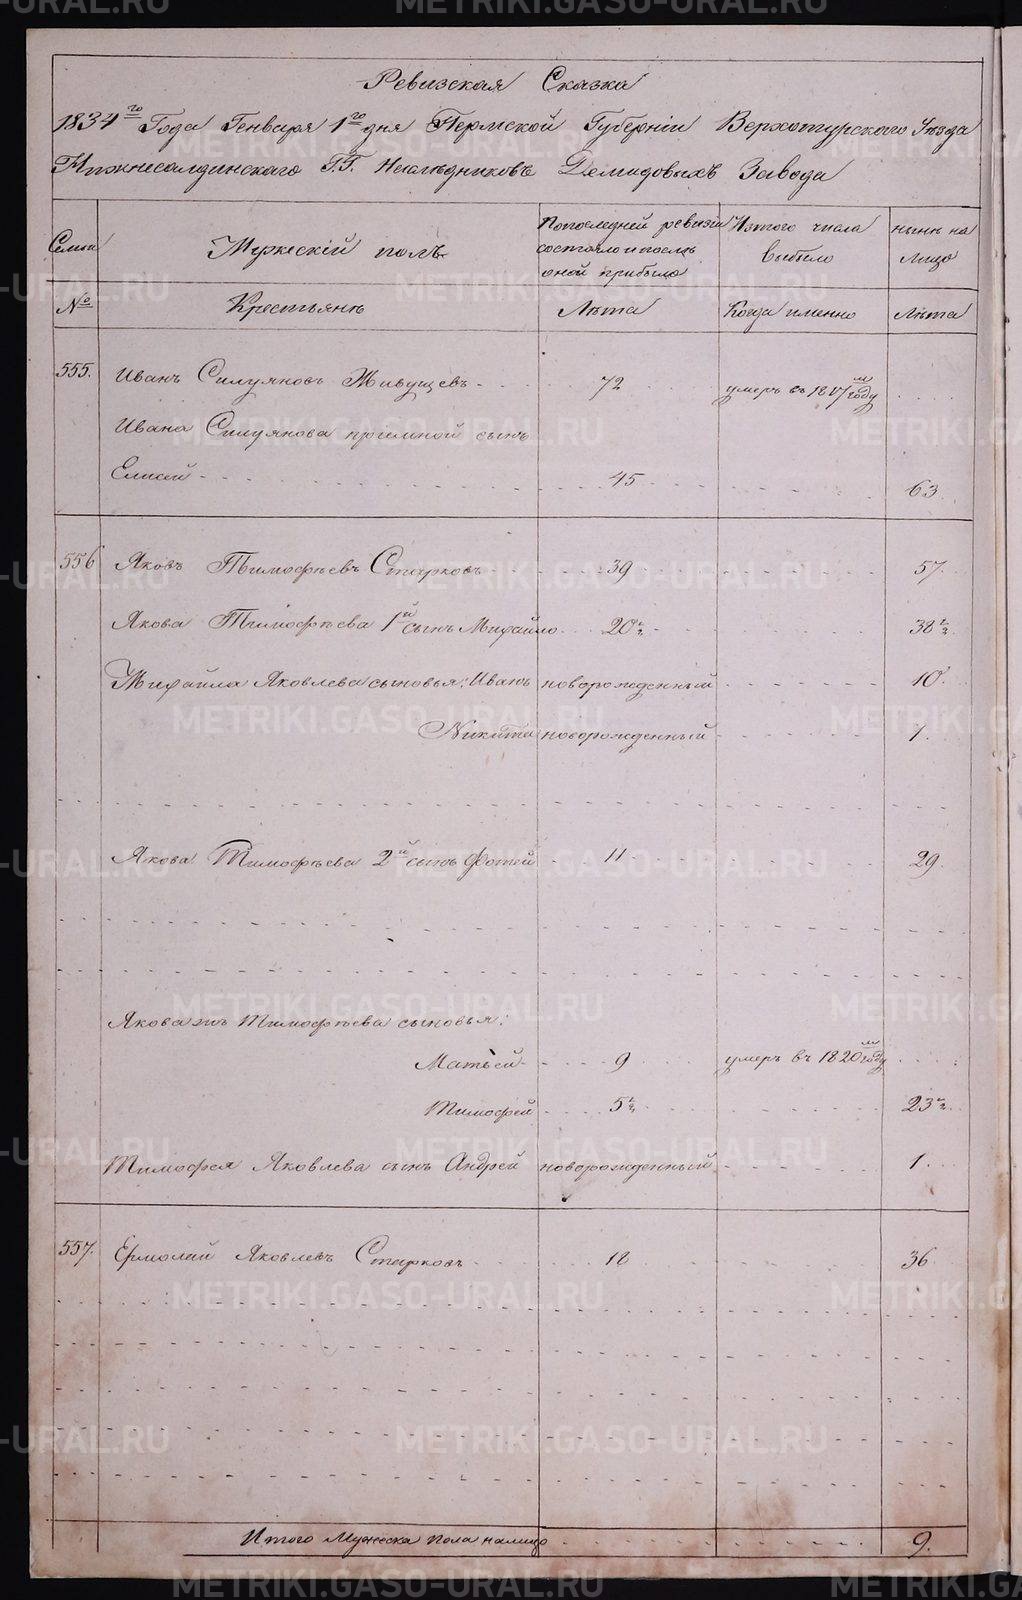 Ревизская Сказка
1834го Года Генваря 1го дня Пермской Губерніи Верхотурскаго Уѣзда
Нижнесалдинскаго Г.Г. Наслѣдниковъ Демидовыхъ Завода
Семьи
Мужескій полъ
По последней ревизіи
состояло и послѣ
оной прибыло
Изтого числа
выбыло
нынѣ на
лицо
№
Крестьянѣ
Лѣта
Когда именно
Лѣта
555. Иванъ Силуяновъ Живущевъ 72 умеръ въ 1817м году
Ивана Силуянова пріемной сынъ
Елисей 45 63
556 Яковъ Тимофѣевъ Старковъ 39 57.
Якова Тимофѣева 1й сынъ Михайло 20½ 38½
Михайла Яковлева сыновья: Иванъ новорожденный 10.
Никита новорожденный 7.
Якова Тимофѣева 2й сынъ Фотей 11 29
Якова жъ Тимофѣева сыновья:
Матвей 9 умеръ въ 1820м году
Тимофей 5½ 23½
Тимофея Яковлева сынъ Андрей новорожденный 1.
557. Ермолай Яковлевъ Старковъ 18 36
Итого Мужеска пола налицо 9.
METRIKI.GASO-URAL.RU